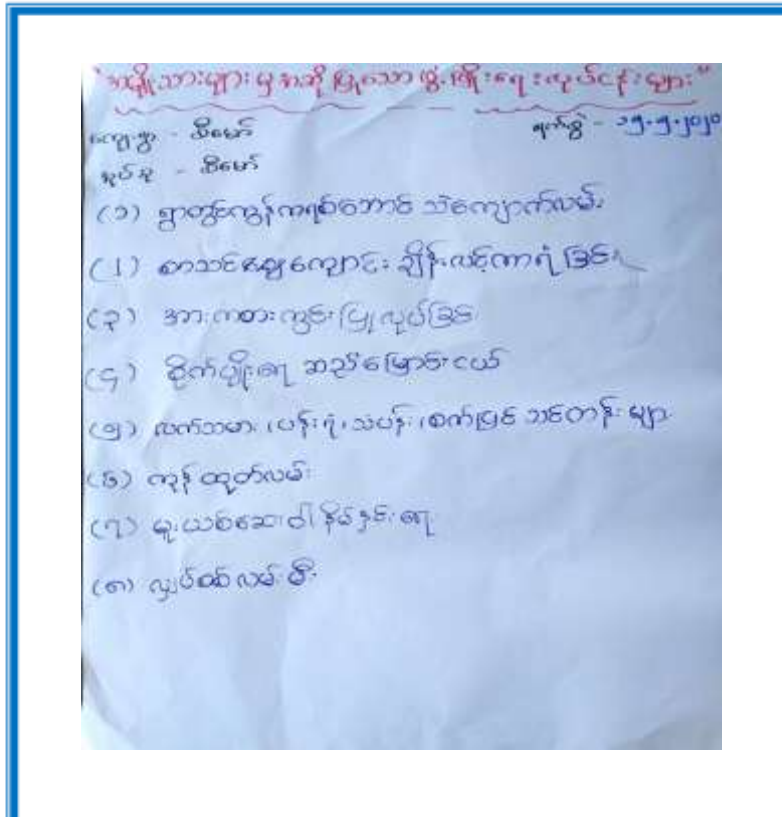 "အမျိုးသားများမှ အဆိုပြုသော ဖွံ့ဖြိုးရေးလုပ်ငန်းများ"
ကျေးရွာ - ဒီမော် ရက်စွဲ - ၁၅.၅.၂၀၂၀
အုပ်စု - ဒီမော်
(၁) ရွာတွင်းကွန်ကရစ်ဘောင် သဲကျောက်လမ်း
(၂) စာသင်ကျောင်း ခြံစည်းရိုး ကာရံခြင်း
(၃) အားကစားကွင်း ပြုလုပ်ခြင်း
(၄) စိုက်ပျိုးရေ ဆည်မြောင်းငယ်
(၅) လက်သမား၊ ပန်းရံ၊ သံပန်း၊ စက်ပြင် သင်တန်းများ
(၆) ကုန်ထုတ်လမ်း
(၇) မူးယစ်ဆေးဝါး နှိမ်နင်းရေး
(၈) လျှပ်စစ်လမ်းမီး